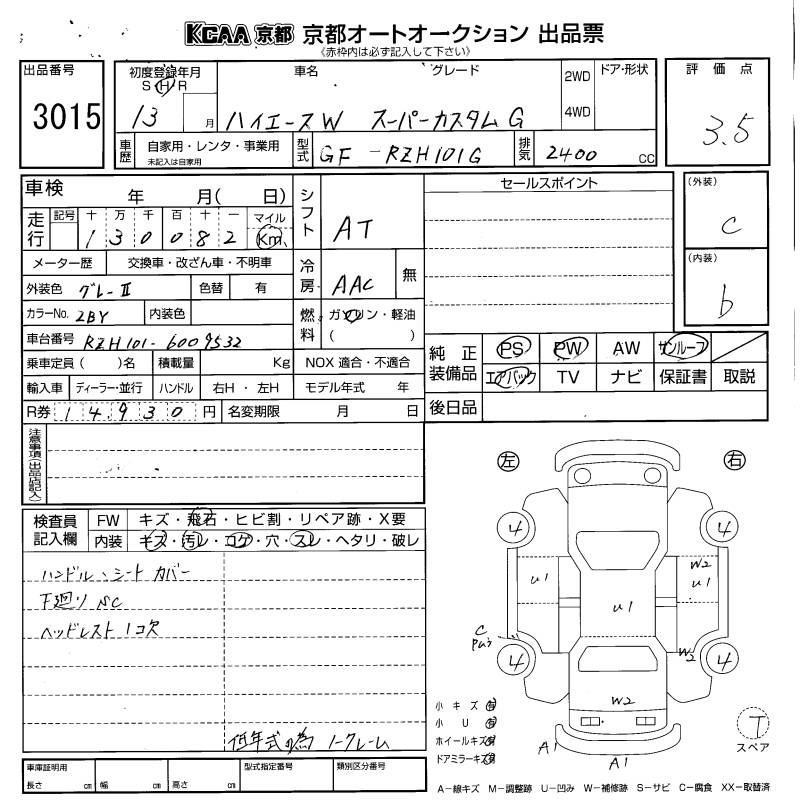 KCAA 京都 京都オートオークション 出品票
《赤枠内は必ず記入して下さい》
出品番号
3015
初度登録年月
S H R
13 月
車名 グレード
ハイエースW スーパーカスタムG
2WD
4WD
ドア・形状
評価点
3.5
車歴
自家用・レンタ・事業用
未記入は自家用
型式
GF-RZH101G
排気
2400 CC
車検 年 月( 日)
シフト
AT
セールスポイント
(外装)
C
(内装)
b
走行
記号 十 万 千 百 十 一 マイル
1 3 0 0 8 2 Km
メーター歴 交換車・改ざん車・不明車
冷房
AAC
無
外装色 グレーII 色替 有
カラーNo. 2BY 内装色
燃料
ガソリン・軽油
( )
車台番号 RZH101-6009532
乗車定員 ( )名 積載量 Kg NOX 適合・不適合
輸入車 ディーラー・並行 ハンドル 右H・左H モデル年式 年
R券 14930 円 名変期限 月 日
純正装備品
PS PW AW サンルーフ
エアバック TV ナビ 保証書 取説
後日品
注意事項(出品店記入)
検査員記入欄
FW キズ・飛石・ヒビ割・リペア跡・X要
内装 キズ・汚レ・コゲ・穴・スレ・ヘタリ・破レ
ハンドル、シートカバー
下廻りSC
ヘッドレスト1コ欠
低年式の為ノークレーム
左 右
4 4
U1 W2 U1
U1
C
4 W2 4
W2
小キズ 有
小U 有
ホイールキズ 有
ドアミラーキズ 有
A1 A1
T
スペア
車庫証明用
長さ cm 幅 cm 高さ cm
型式指定番号 類別区分番号
A-線キズ M-調整跡 U-凹み W-補修跡 S-サビ C-腐食 XX-取替済